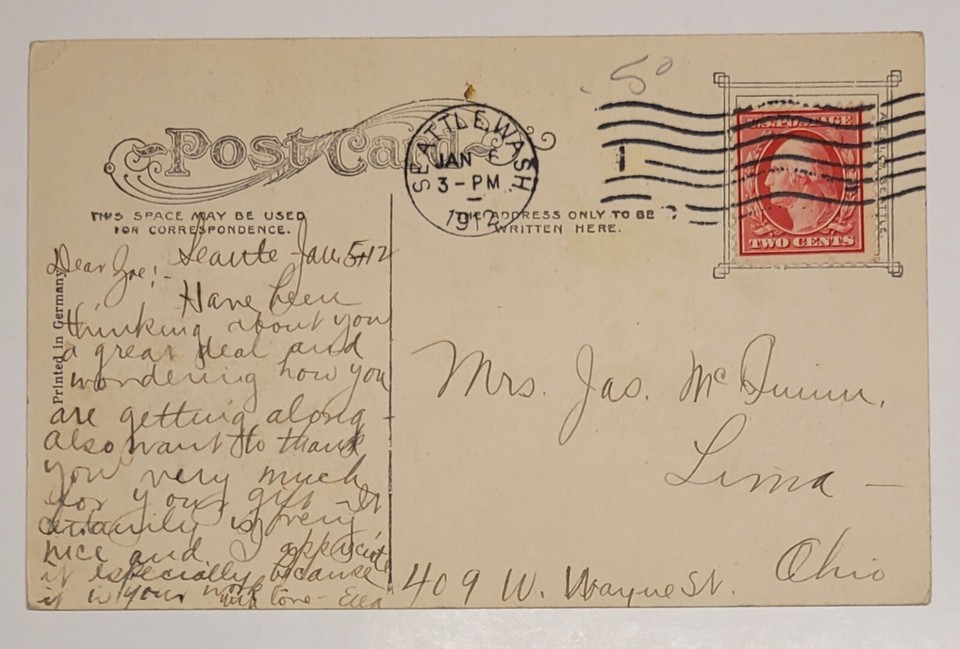 50
Post Card
SEATTLE, WASH.
JAN 6
3-PM
1912
1
U.S. POSTAGE
TWO CENTS
THIS SPACE MAY BE USED
FOR CORRESPONDENCE.
THE ADDRESS ONLY TO BE
WRITTEN HERE.
Printed in Germany
Seattle Jan. 5-12
Dear Zoe!-
Have been
thinking about you
a great deal and
wondering how you
are getting along -
also want to thank
you very much
for your gift - It
certainly is very
nice and I appreciate
it especially because
it is your work
with love - Ella
Mrs. Jas. McQuinn,
Lima -
Ohio
409 W. Wayne St.